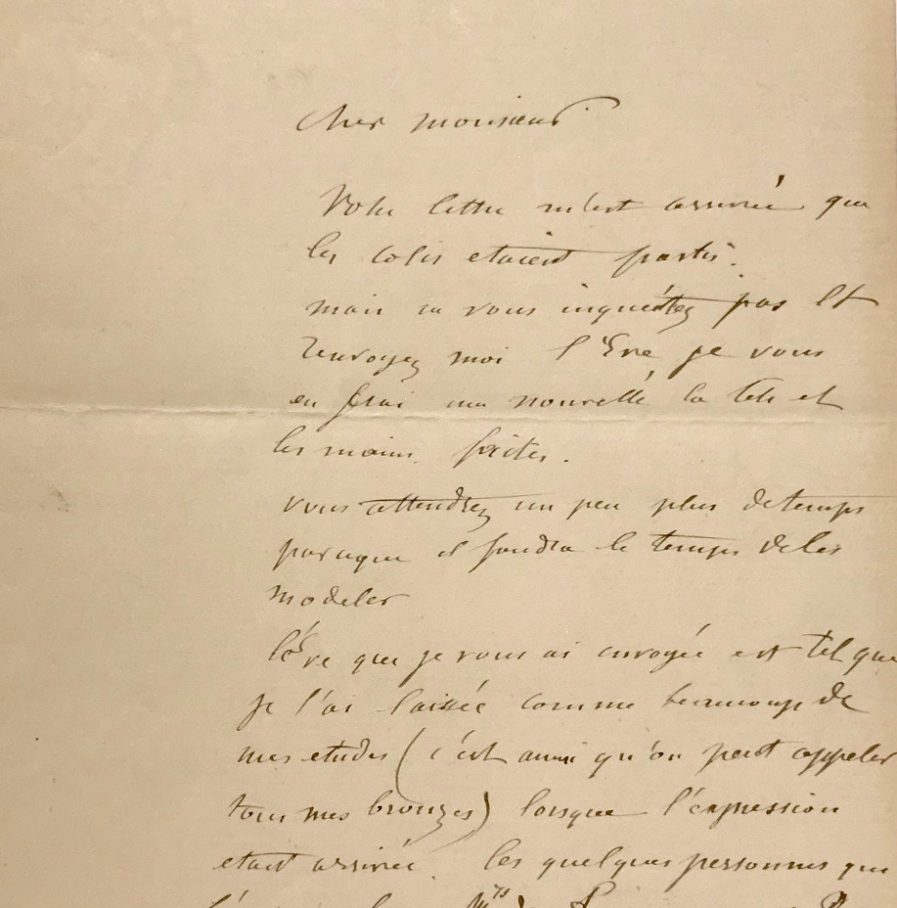 cher monsieur
Votre lettre m'est arrivée que
les colis etaient partis.
mais ne vous inquiétez pas et
renvoyez moi l'Eve je vous
en ferai une nouvelle la tête et
les mains faites.
vous attendrez un peu plus de temps
parceque il faudra le temps de les
modeler
l'Eve que je vous ai envoyée est tel que
je l'ai laissée comme beaucoup de
mes etudes (c'est ainsi qu'on peut appeler
tous mes bronzes) lorsque l'expression
etait arrivée. les quelques personnes qui